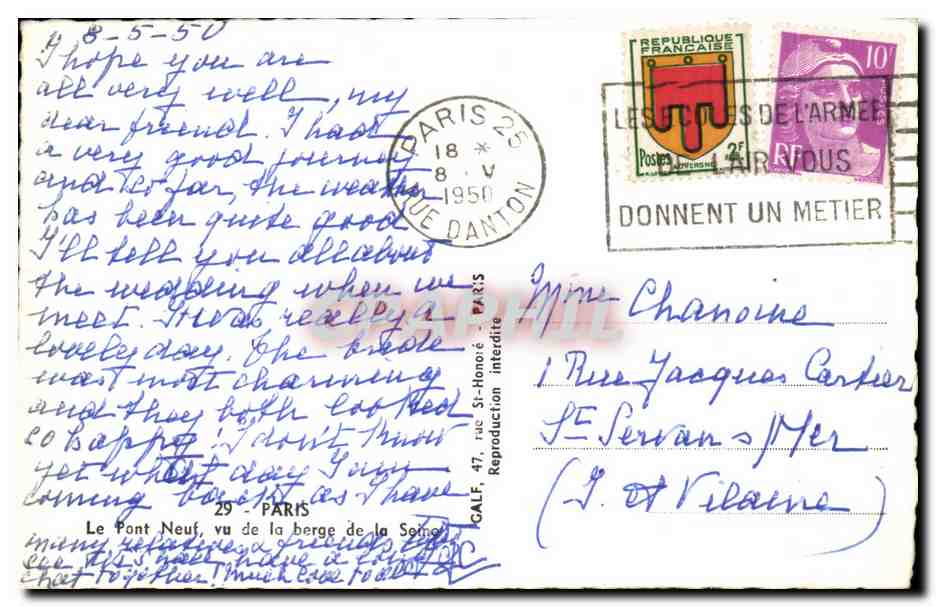 8-5-50
I hope you are
all very well, my
dear friend. I had
a very good journey
and so far, the weather
has been quite good
I'll tell you all about
the wedding when we
meet. It was really a
lovely day. The bride
was most charming
and they both looked
so happy! I don't know
yet what day I am
coming back as I have
29 - PARIS
Le Pont Neuf, vu de la berge de la Seine
many relatives & friends to
see. We'll have a long
chat together! Much love to all
GALF, 47, rue St-Honoré - PARIS
Reproduction interdite
PARIS 25
18 *
8 - V
1950
RUE DANTON
REPUBLIQUE
FRANÇAISE
Postes 2F
AUVERGNE
10F
RF
LES ECOLES DE L'ARMEE
DE L'AIR VOUS
DONNENT UN METIER
Mme Chanoine
1 Rue Jacques Cartier
St Servan s/Mer
(I. et Vilaine)
CPAPHIL